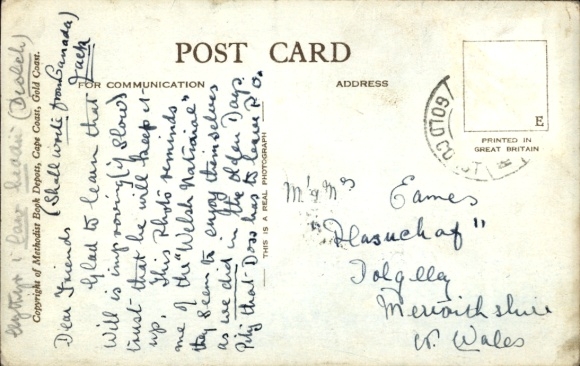 POST CARD
FOR COMMUNICATION
ADDRESS
Dear Friends (Shall write from Canada) Jack
Glad to learn that
Will is improving (if slow)
trust that he will keep it
up. This Photo reminds
me of the "Welsh National"
they seem to enjoy themselves
as we did in the olden Days.
Pity that Doss has to leave P.O.
Copyright of Methodist Book Depots, Cape Coast, Gold Coast.
THIS IS A REAL PHOTOGRAPH
E
PRINTED IN
GREAT BRITAIN
Mr & Mrs Eames
"Plasuchaf"
Dolgelley
Merionithshire
N. Wales